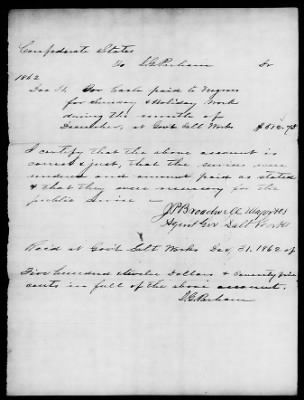 Confederate States
To S. G. Parham Dr
1862
Dec 31 For Cash paid to Negroes
for Sunday & Holiday Work
during the month of
December, at Gov't Salt Works $512.75
I certify that the above account is
correct & just, that the services were
rendered and amount paid as stated
& that they were necessary for the
public service —
J P Broadwell
Agent Gov Salt Works
Recd at Gov't Salt Works Dec, 31, 1862 of
Five hundred & twelve Dollars & Seventy five
cents in full of the above account.
S. G. Parham